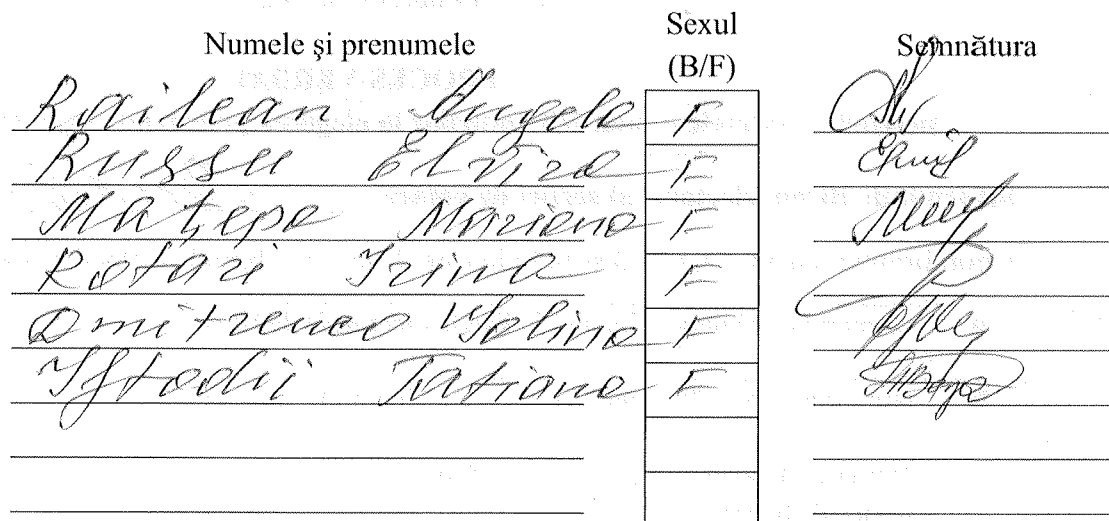 Numele și prenumele Sexul (B/F) Semnătura
Railean Angela F
Russu Elvira F
Mațepa Mariana F
Rotari Irina F
Dmitrenco Galina F
Iftodii Tatiana F